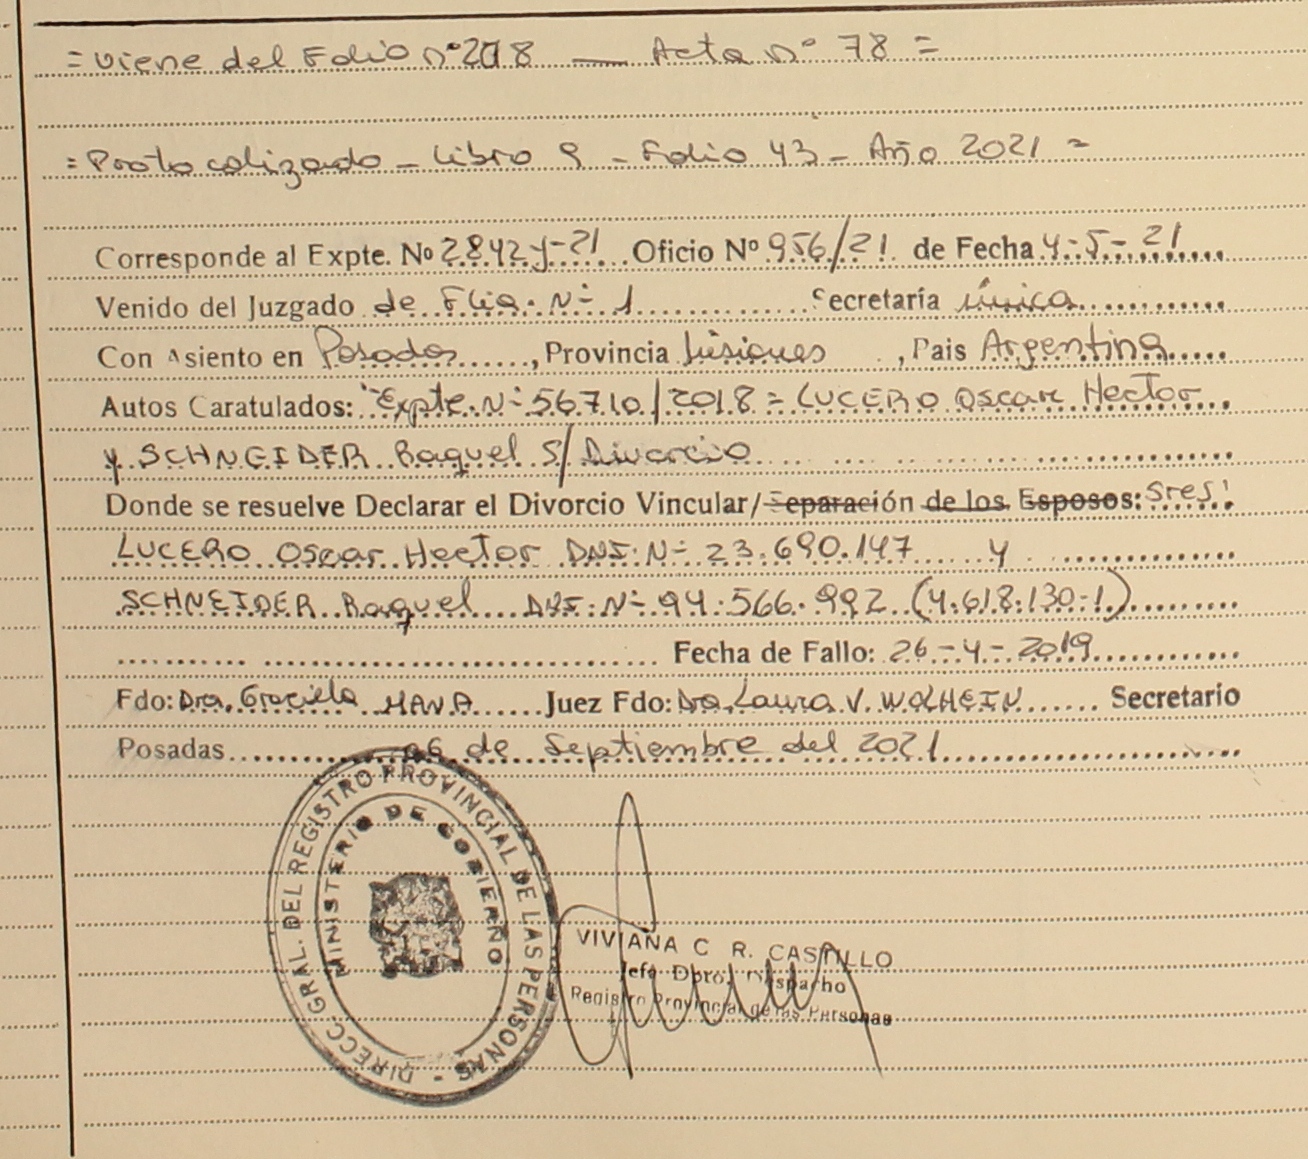 = Viene del Folio nº 218 — Acta nº 78 =
= Protocolizado - Libro 9 - Folio 43 - Año 2021 =
Corresponde al Expte. Nº 2842-y-21 Oficio Nº 956/21 de Fecha 4-5-21
Venido del Juzgado de Flia. Nº 1 Secretaría única
Con Asiento en Posadas, Provincia Misiones, Pais Argentina
Autos Caratulados: "Expte. Nº 56710/2018 = LUCERO Oscar Hector
y SCHNEIDER Raquel S/ Divorcio
Donde se resuelve Declarar el Divorcio Vincular/Separación de los Esposos: Sres:
LUCERO Oscar Hector DNI: Nº 23.690.147 y
SCHNEIDER Raquel DNI: Nº 94.566.992 (4.618.130-1)
Fecha de Fallo: 26-4-2019
Fdo: Dra. Graciela Juez Fdo: Dra. Laura V. WOLHEIN Secretario
Posadas 06 de Septiembre del 2021
DIRECC. GRAL. DEL REGISTRO PROVINCIAL DE LAS PERSONAS -
MINISTERIO DE GOBIERNO
VIVIANA C R. CASTILLO
Jefa Dpto. Despacho
Registro Provincial de las Personas